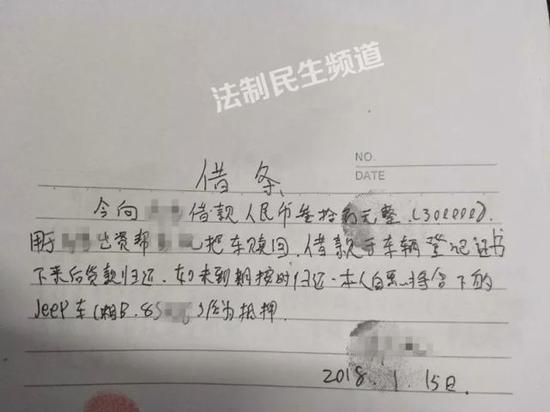 法制民生频道
NO.
DATE
借条
今向 借款人民币叁拾万元整.(300000).
用于 出资帮 把车赎回,借款于车辆登记证书
下来后贷款归还,如未到期按时归还.本人自愿将名下的
Jeep车(湘B.85 )作为抵押.
2018.1.15日.